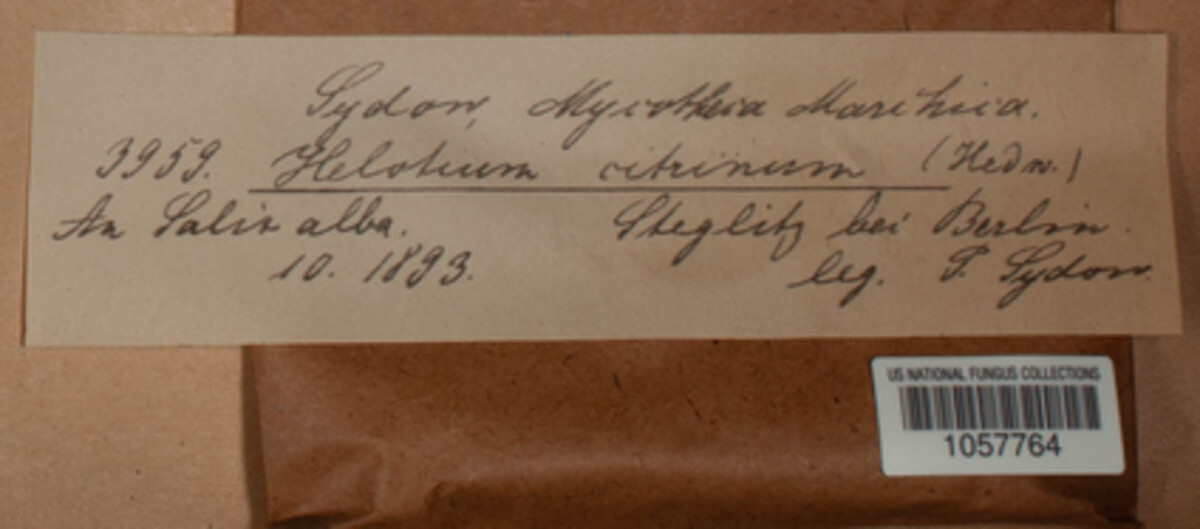 Sydow, Mycotheca Marchica.
3959. Helotium citrinum (Hedw.)
An Salix alba. Steglitz bei Berlin.
10. 1893. leg. P. Sydow.
US NATIONAL FUNGUS COLLECTIONS
1057764